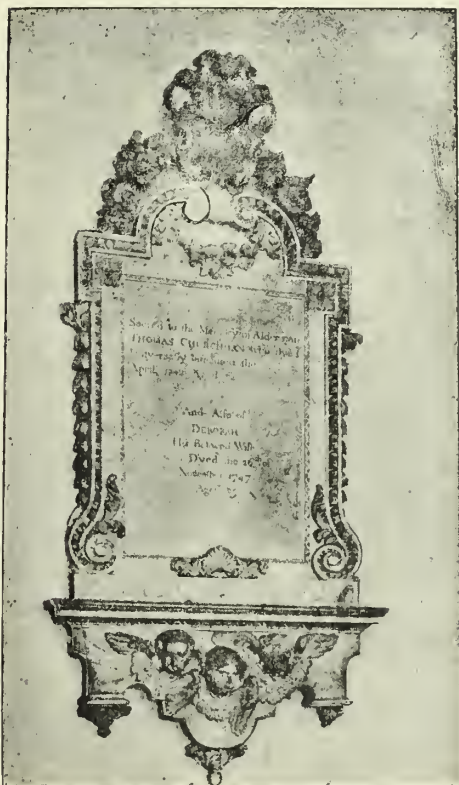 Sacred to the Memory of Alderman
THOMAS CHURCHMAN who died
the
April
And Also of
DEBORAH
His Beloved Wife
Dyed the 26th of
November 1747
Aged